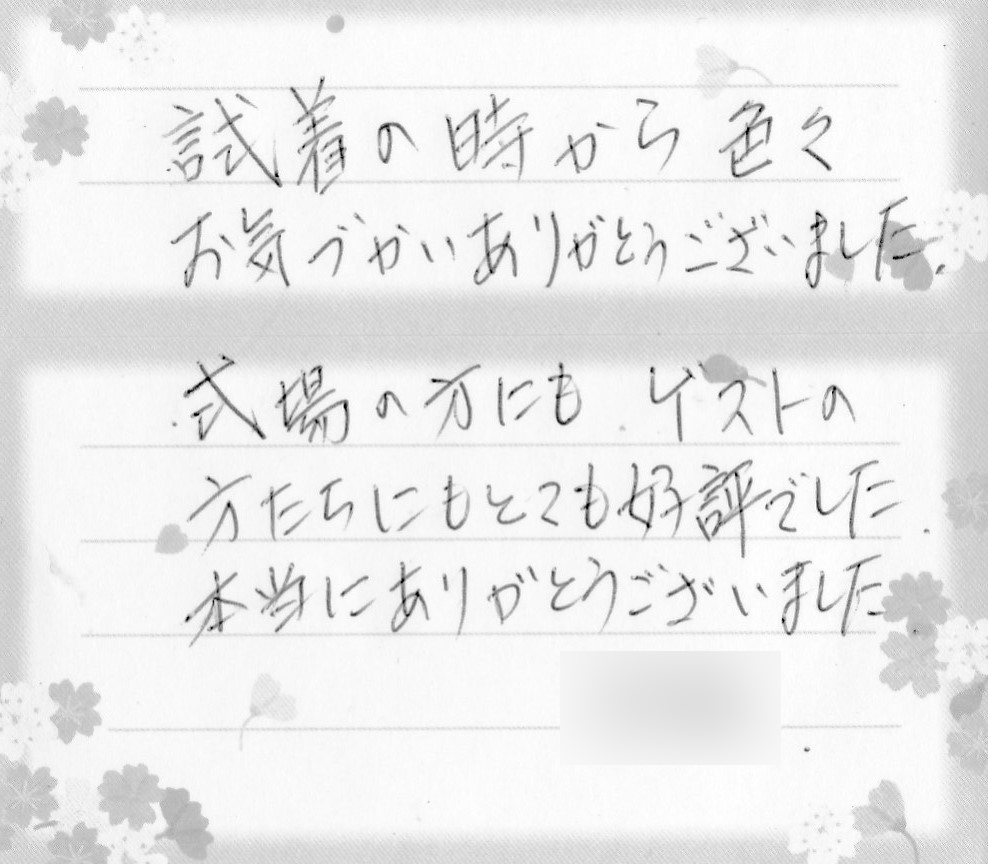 試着の時から 色々
お気づかいありがとうございました.
式場の方にも ゲストの
方たちにもとても好評でした.
本当にありがとうございました.